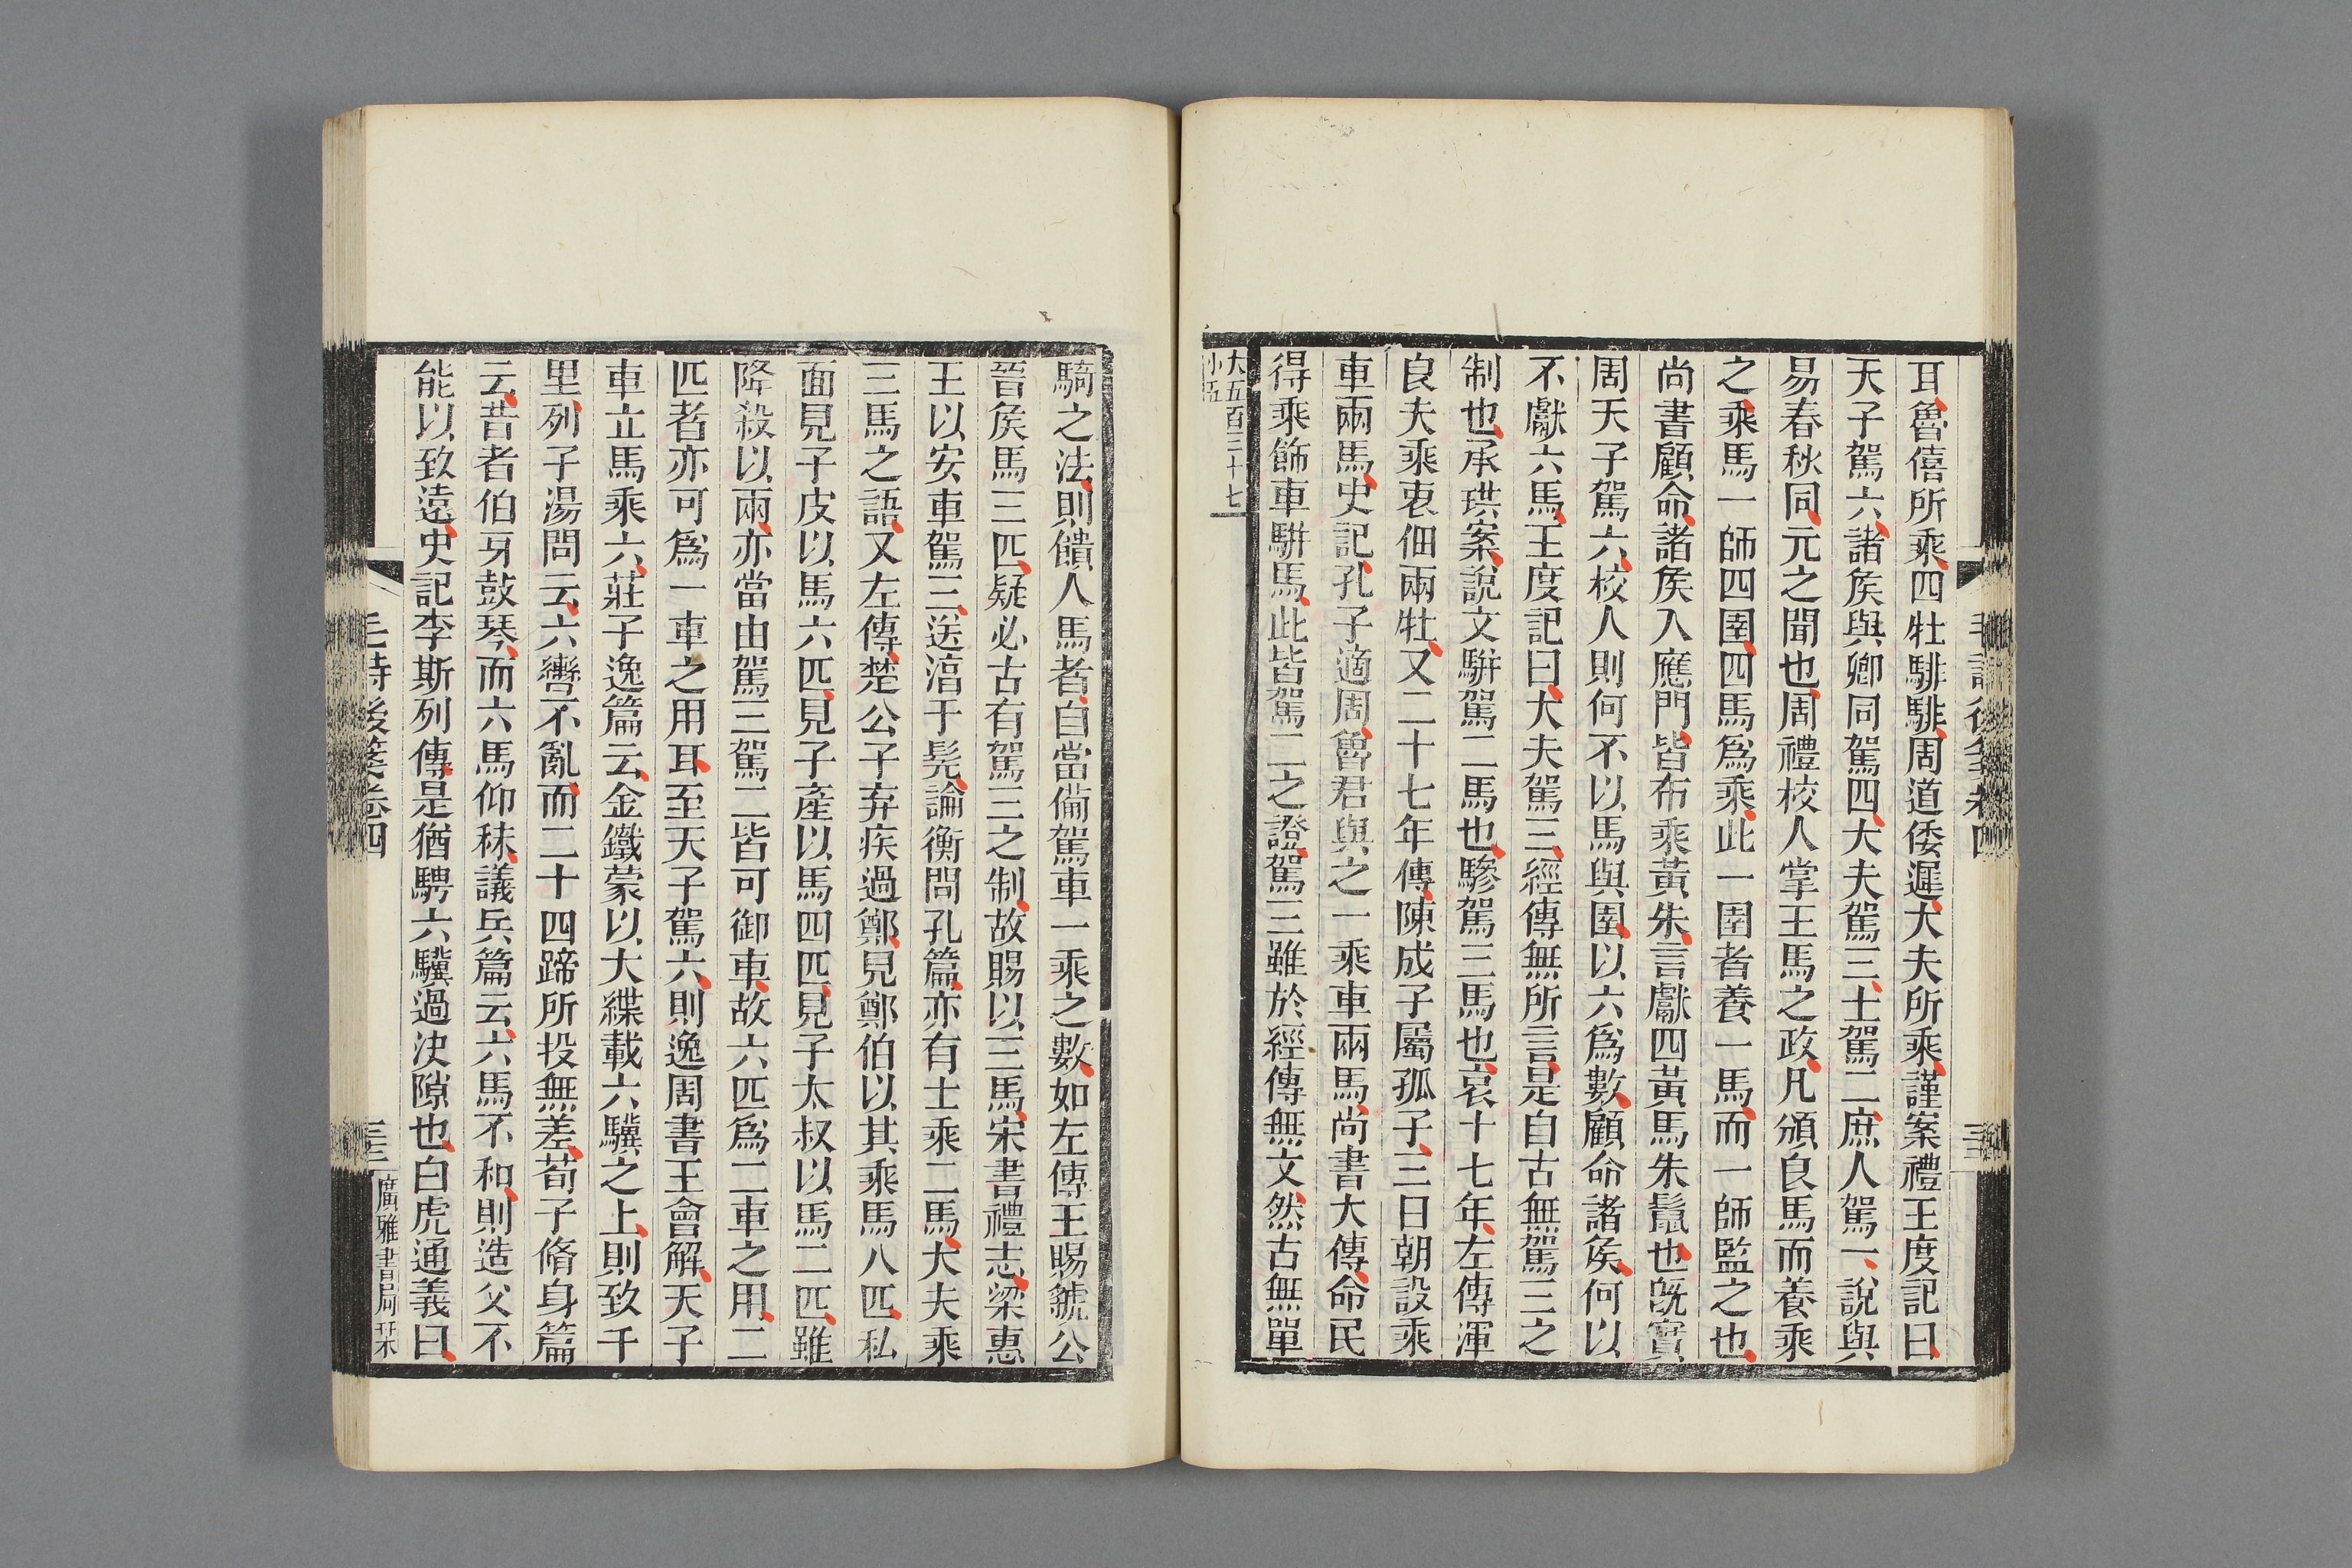 耳魯僖所乘四牡騑騑周道倭遲大夫所乘謹案禮王度記曰
天子駕六諸矦與卿同駕四大夫駕三士駕二庶人駕一說與
易春秋同元之聞也周禮校人掌王馬之政凡頒良馬而養乘
之乘馬一師四圉四馬爲乘此一圉者養一馬而一師監之也
尚書顧命諸矦入應門皆布乘黃朱言獻四黃馬朱鬣也旣實
周天子駕六校人則何不以馬與圉以六爲數顧命諸矦何以
不獻六馬王度記曰大夫駕三經傳無所言是自古無駕三之
制也承珙案說文騈駕二馬也驂駕三馬也哀十七年左傳渾
良夫乘衷佃兩牡又二十七年傳陳成子屬孤子三日朝設乘
車兩馬史記孔子適周魯君與之一乘車兩馬尚書大傳命民
得乘飾車騈馬此皆駕二之證駕三雖於經傳無文然古無單
大五百三十七
小五
毛詩後箋卷四
騎之法則饋人馬者自當備駕車一乘之數如左傳王賜虢公
晉矦馬三匹疑必古有駕三之制故賜以三馬宋書禮志梁惠
王以安車駕三送淳于髡論衡問孔篇亦有士乘二馬大夫乘
三馬之語又左傳楚公子弃疾過鄭見鄭伯以其乘馬八匹私
面見子皮以馬六匹見子產以馬四匹見子太叔以馬二匹雖
降殺以兩亦當由駕三駕二皆可御車故六匹爲二車之用二
匹者亦可爲一車之用耳至天子駕六則逸周書王會解天子
車立馬乘六莊子逸篇云金鐵蒙以大緤載六驥之上則致千
里列子湯問云六轡不亂而二十四蹄所投無差荀子脩身篇
云昔者伯牙鼓琴而六馬仰秣議兵篇云六馬不和則造父不
能以致遠史記李斯列傳是猶騁六驥過決隙也白虎通義曰
毛詩後箋卷四
三三
廣雅書局栞